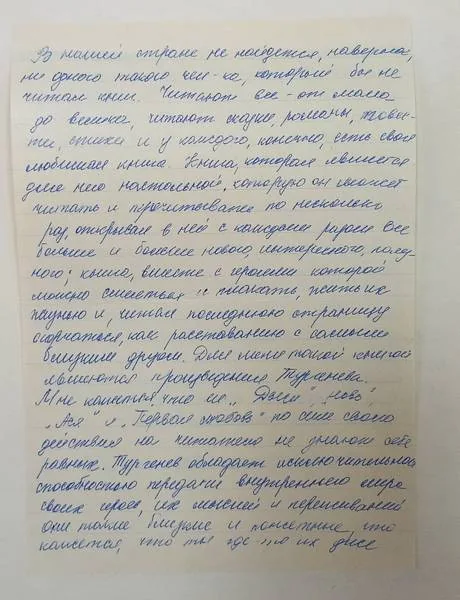 В нашей стране не найдется, наверно,
ни одного такого чел-ка, который бы не
читал книг. Читают все – от мала
до велика, читают сказки, романы, повес-
ти, стихи и у каждого, конечно, есть своя
любимая книга. Книга, которая является
для него настольной, которую он может
читать и перечитывать по несколько
раз, открывая в ней с каждым разом все
больше и больше нового, интересного, полез-
ного; книга, вместе с героями которой
можно смеяться и плакать, жить их
жизнью и, читая последнюю страницу
огорчаться, как расставанию с самым
близким другом. Для меня такой книгой
являются произведения Тургенева.
Мне кажется, что ее „Дым", „Новь",
„Ася" и „Первая любовь" по силе своего
действия на читателя не знают себе
равных. Тургенев обладает исключительной
способностью передачи внутреннего мира
своих героев, их мыслей и переживаний
они такие близкие и понятные, что
кажется, что ты где-то их уже